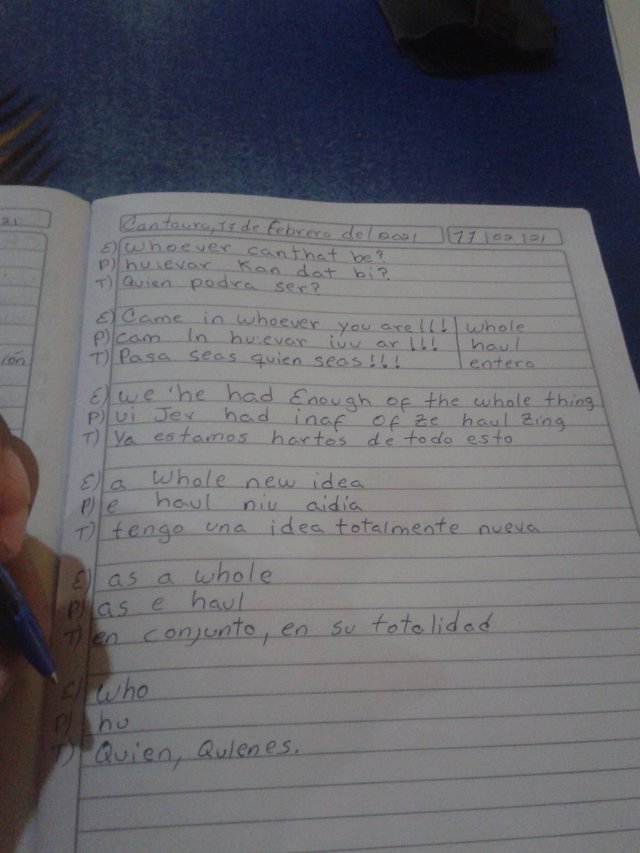 21
Cantaura, 17 de Febrero del 2021 17/02/21
E) whoever canthat be?
P) hu:evar Kan dat bi?
T) Quien podra ser?
E) Came in whoever you are!!! whole
P) cam in hu:evar iuu ar!!! haul
T) Pasa seas quien seas!!! entero
ión
E) we 'he had Enough of the whole thing
P) ui Jev had inaf of ze haul zing
T) Ya estamos hartos de todo esto
E) a whole new idea
P) e haul niu aidia
T) tengo una idea totalmente nueva
E) as a whole
P) as e haul
T) en conjunto, en su totalidad
E) who
P) hu
T) Quien, Quienes.